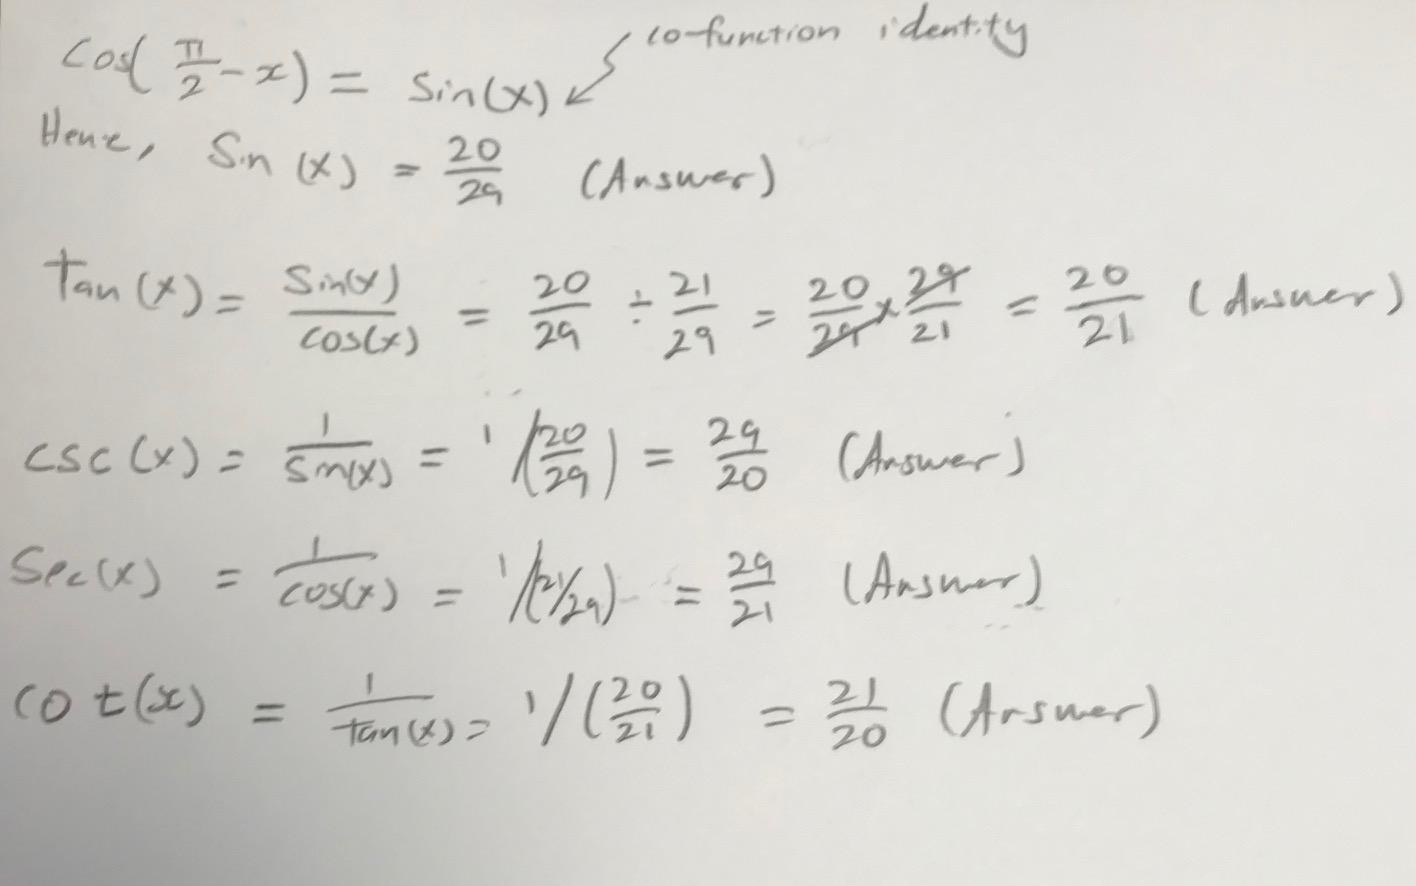 co-function identity
cos(π/2 - x) = sin(x)
Hence, Sin (x) = 20/29 (Answer)
tan (x) = sin(x)/cos(x) = 20/29 ÷ 21/29 = 20/29 × 29/21 = 20/21 (Answer)
csc (x) = 1/sin(x) = 1/(20/29) = 29/20 (Answer)
Sec(x) = 1/cos(x) = 1/(21/29) = 29/21 (Answer)
cot(x) = 1/tan(x) = 1/(20/21) = 21/20 (Answer)